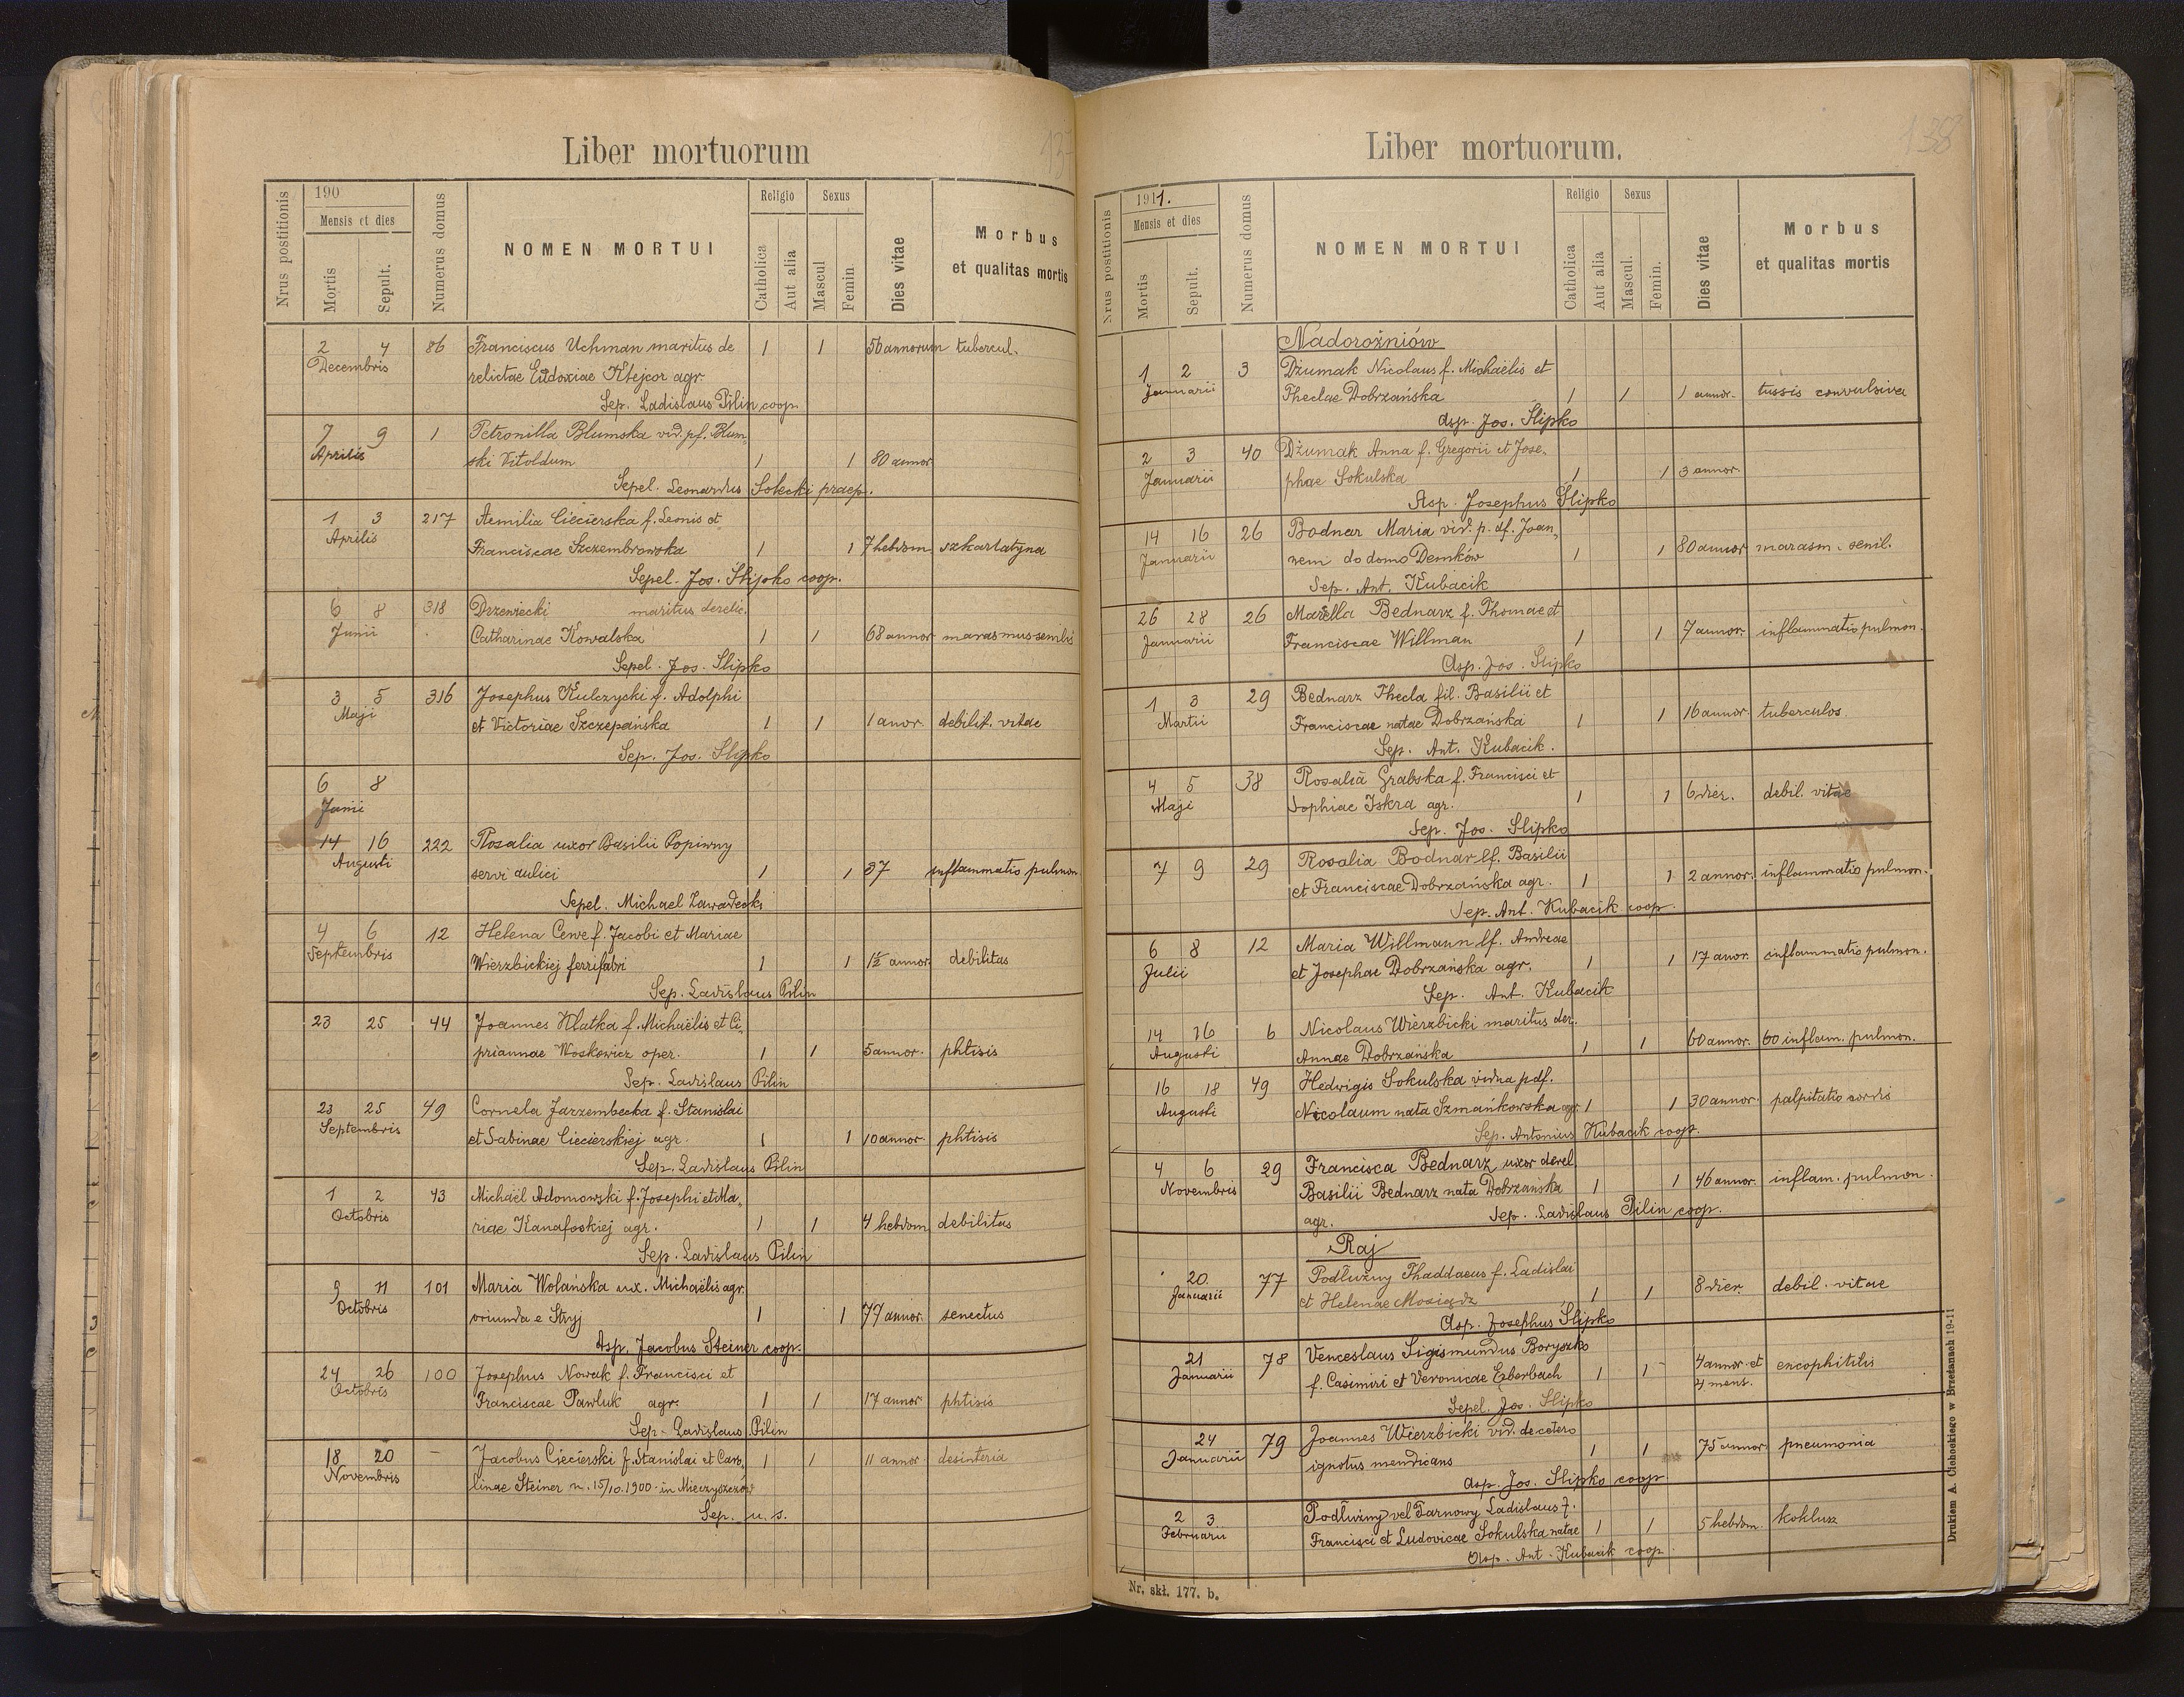 Liber mortuorum
137
Nrus postitionis
190
Mensis et dies
Mortis
Sepult.
Numerus domus
NOMEN MORTUI
Religio
Catholica
Aut alia
Sexus
Mascul
Femin.
Dies vitae
Morbus
et qualitas mortis
2 4 86 Franciscus Uchman maritus de 1 1 56 annorum tubercul.
Decembris relictae Eudoxiae Klejcor agr.
Sep. Ladislaus Pilin coop.
7 9 1 Petronilla Blumska vid. pf. Blum,
Aprilis ski Vitoldum 1 1 80 annor
Sepel. Leonardus Solecki praep.
1 3 217 Aemilia Ciecierska f. Leonis et
Aprilis
Franciscae Szczembrowska 1 1 7 hebdom szkarlatyna
Sepel. Jos. Slipko coop.
6 8 318 Drzewiecki maritus derelic.
Junii Catharinae Kowalska 1 1 68 annor marasmus senilis
Sepel. Jos. Slipko
3 5 316 Josephus Kulczycki f. Adolphi
Maji et Victoriae Szczepańska 1 1 1 anor. debilit. vitae
Sep. Jos. Slipko
6 8
Junii
14 16 222 Rosalia uxor Basilii Popiwny
Augusti servi aulici 1 1 37 inflammatio pulmon
Sepel. Michael Zawadecki
4 6 12 Helena Cewe f. Jacobi et Mariae
Septembris Wierzbickiej ferrifabri 1 1 1½ annor. debilitas
Sep. Ladislaus Pilin
23 25 44 Joannes Hlatka f. Michaëlis et Ci,
priannae Woskowicz oper. 1 1 5 annor. phtisis
Sep. Ladislaus Pilin
23 25 49 Cornela Jarzembecka f. Stanislai
Septembris et Sabinae Ciecierskiej agr. 1 1 10 annor. phtisis
Sep. Ladislaus Pilin
1 2 43 Michaël Adomowski f. Josephi et Ma,
Octobris riae Kanafoskiej agr. 1 1 4 hebdom debilitas
Sep. Ladislaus Pilin
9 11 101 Maria Wolańska ux. Michaëlis agr.
Octobris oriunda e Stryj 1 1 77 annor. senectus
Asp. Jacobus Steiner coop.
24 26 100 Josephus Nowak f. Francisci et
Octobris Franciscae Pawluk agr. 1 1 17 annor phtisis
Sep. Ladislaus Pilin
18 20 – Jacobus Ciecierski f. Stanislai et Caro, 1 1 11 annor. desinteria
Novembris linae Steiner n. 15/10.1900. in Mieczyszczów
Sep. u. s.
Liber mortuorum.
138
Nrus postitionis
1911.
Mensis et dies
Mortis
Sepult.
Numerus domus
NOMEN MORTUI
Religio
Catholica
Aut alia
Sexus
Mascul.
Femin.
Dies vitae
Morbus
et qualitas mortis
Nadorożniów
1 2 3 Dżumak Nicolaus f. Michaëlis et
Januarii Theclae Dobrzańska 1 1 1 annor. tussis convulsiva
Asp. Jos. Slipko
2 3 40 Dżumak Anna f. Gregorii et Jose,
Januarii phae Sokulska 1 1 3 annor.
Asp. Josephus Slipko
14 16 26 Bodnar Maria vid. p. df. Joan,
Januarii nem do domo Demków 1 1 80 annor marasm. senil.
Sep. Ant. Kubacik
26 28 26 Marella Bednarz f. Thomae et
Januarii Franciscae Willman 1 1 7 annor. inflammatio pulmon.
Asp. Jos. Slipko
1 3 29 Bednarz Thecla fil. Basilii et
Martii Franciscae natae Dobrzańska 1 1 16 annor. tuberculos.
Sep. Ant. Kubacik.
4 5 38 Rosalia Grabska f. Francisci et
Maji Sophiae Iskra agr. 1 1 6 dier. debil. vitae
Sep. Jos. Slipko
7 9 29 Rosalia Bodnar lf. Basilii
et Franciscae Dobrzańska agr. 1 1 2 annor. inflammatio pulmon.
Sep. Ant. Kubacik coop.
6 8 12 Maria Willmann lf. Andreae
Julii et Josephae Dobrzańska agr. 1 1 17 anor. inflammatio pulmon.
Sep. Ant. Kubacik
14 16 6 Nicolaus Wierzbicki maritus der.
Augusti Annae Dobrzańska 1 1 60 annor. 60 inflam. pulmon.
16 18 49 Hedwigis Sokulska vidua pdf.
Augusti Nicolaum nata Szmańkowska agr. 1 1 30 annor. palpitatio cordis
Sep. Antonius Kubacik coop.
4 6 29 Francisca Bednarz uxor derel.
Novembris Basilii Bednarz nata Dobrzańska 1 1 46 annor. inflam. pulmon.
agr. Sep. Ladislaus Pilin coop.
Raj
20 77 Podłużny Thaddaeus f. Ladislai
Januarii et Helenae Mosiądz 1 1 8 dier. debil. vitae
Asp. Josephus Slipko
21 78 Venceslaus Sigismundus Boryszko
Januarii f. Casimiri et Veronicae Eberbach 1 1 4 annor. et encophititis
4 mens.
Sepel. Jos. Slipko
24 79 Joannes Wierzbicki vid. de cetero
Januarii ignotus mendicans 1 1 75 annor. pneumonia
Asp. Jos. Slipko coop.
2 3 Podłużny vel Tarnowy Ladislaus f.
Februarii Francisci et Ludovicae Sokulska natae 1 1 5 hebdom. koklusz
Asp. Ant. Kubacik coop.
Nr. skł. 177. b.
Drukiem A. Cichockiego w Brzeżanach 19-11